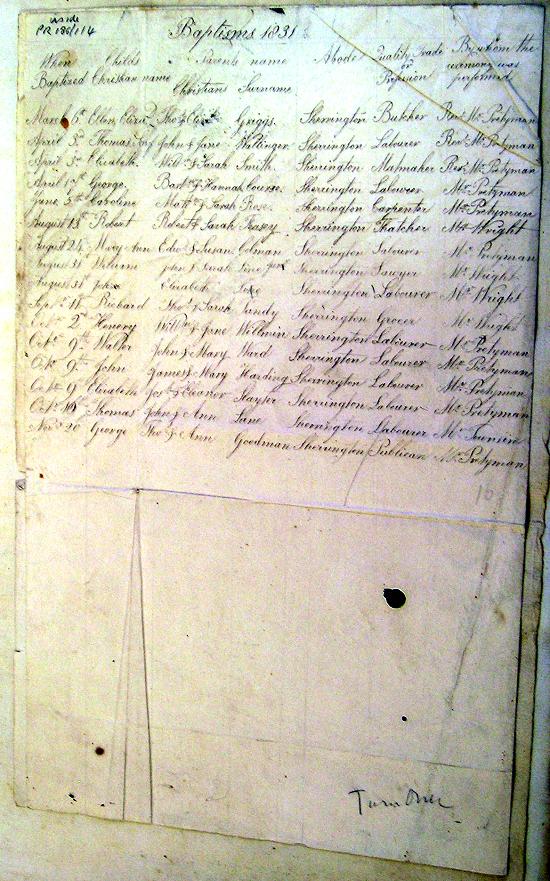 inside
PR 188/1/4
Baptisms 1831
When Childs Parents name Abode Quality Trade By whom the
or ceremony was
Baptized Christian name Profession performed
Christians Surname
March 6th Ellen Eliza Thos & Eliza Griggs Sherrington Butcher Revd Mr Pretyman
April 3d Thomas John & Jane Sherrington Labourer Revd Mr Pretyman
April 3d Elizabeth Willm & Sarah Smith Sherrington Matmaker Revd Mr Pretyman
April George Bart & Hannah Course Sherrington Labourer Mr Pretyman
June 5th Caroline Matt & Sarah Rose Sherrington Carpenter Mr Pretyman
August 13 Robert Robert & Sarah Feasey Sherrington Thatcher Mr Wright
August 24 Mary Ann Edwd & Susan Colman Sherrington Labourer Mr Pretyman
August 31 William John & Sarah Line Junr Sherrington Sawyer Mr Wright
August 31st John Elizabeth Sherrington Labourer Mr Wright
Septr 11 Richard Thos & Sarah Sherrington Grocer Mr Wright
Octr 2nd Henery Willm & Jane Sherrington Labourer Mr Pretyman
Octr 9th Walter John & Mary Ward Sherrington Labourer Mr Pretyman
Octr 9th John James & Mary Harding Sherrington Labourer Mr Pretyman
Octr 9 Elizabeth Josh & Eleanor Sherrington Labourer Mr Pretyman
Octr 16 Thomas John & Ann Lane Sherrington Labourer Mr
Novr 20 George Thos & Ann Goodman Sherrington Publican Mr Pretyman
16
Turn Over